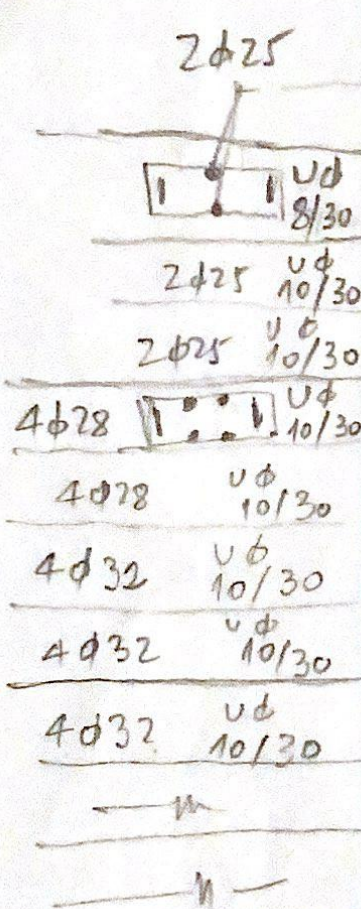 2ϕ25
Uϕ
8/30
2ϕ25 Uϕ
10/30
2ϕ25 Uϕ
10/30
4ϕ28 Uϕ
10/30
4ϕ28 Uϕ
10/30
4ϕ32 Uϕ
10/30
4ϕ32 Uϕ
10/30
4ϕ32 Uϕ
10/30